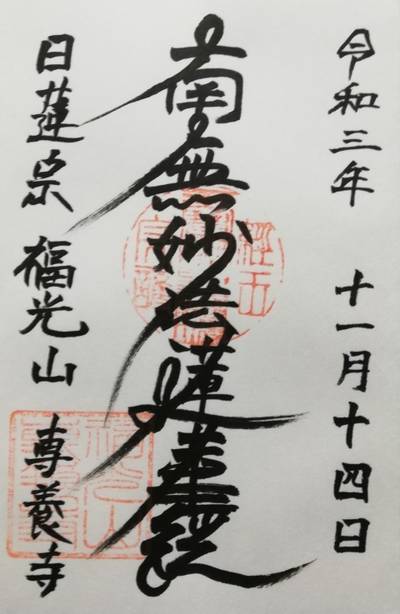 令和三年 十一月十四日
南無妙法蓮華経
日蓮宗 福光山 専養寺